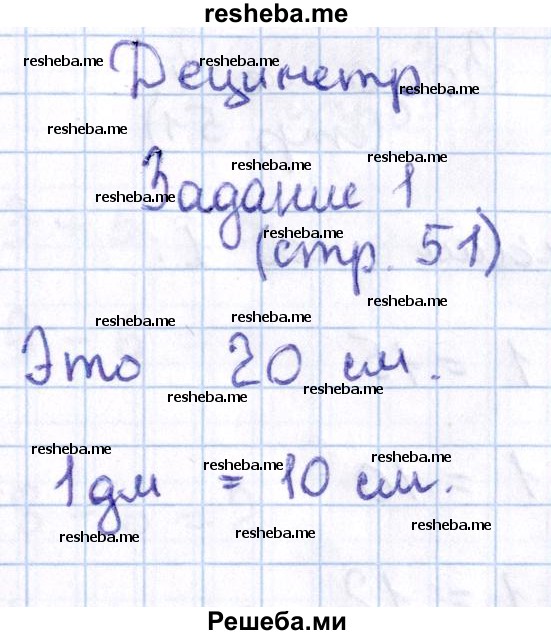 resheba.me
resheba.me
resheba.me
Дециметр.
resheba.me
resheba.me
resheba.me
resheba.me
resheba.me
Задание 1
resheba.me
(стр. 51)
resheba.me
resheba.me
resheba.me
Это 20 см.
resheba.me
resheba.me
resheba.me
resheba.me
resheba.me
1 дм = 10 см.
resheba.me
resheba.me
resheba.me
Решеба.ми